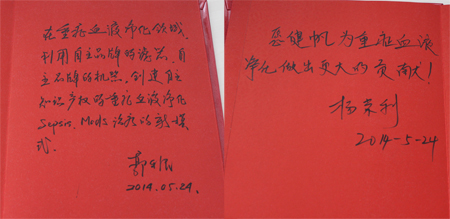 在重症血液净化领域,
利用自主品牌的滤器、自
主品牌的机器,创建自主
知识产权的重症血液净化
Sepsis, Mods 治疗的新模
式.
2014.05.24.
愿健帆为重症血液
净化做出更大的贡献!
杨荣利
2014-5-24